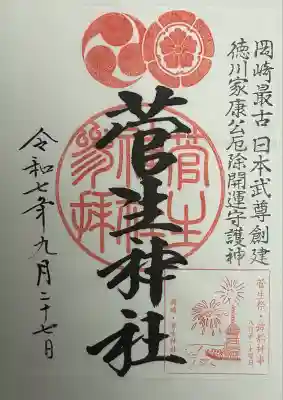 岡崎最古 日本武尊創建
徳川家康公厄除開運守護神
菅生神社
令和七年九月二十七日
菅生祭・鉾船神事